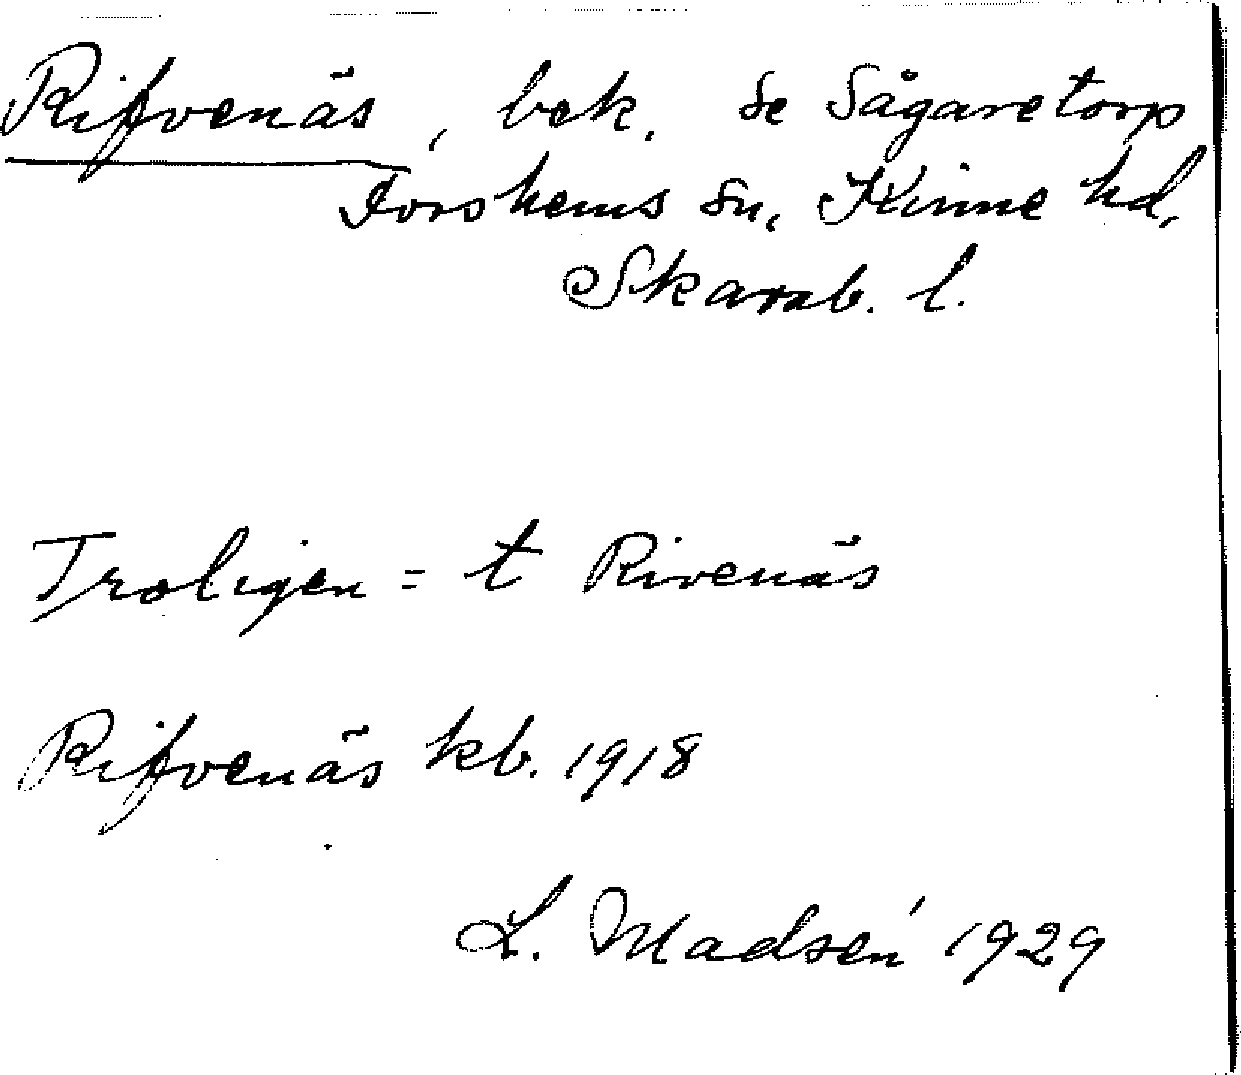 Rifvenäs, bek. Se Sågaretorp
Forshems sn, Kinne hd,
Skarab. l.
Troligen = t Rivenäs
Rifvenäs kb. 1918
L. Madsén 1929